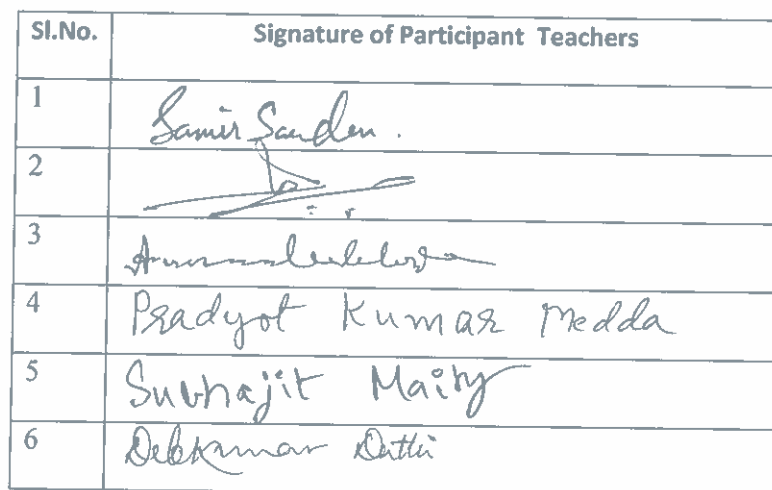 Sl.No. Signature of Participant Teachers
1 Samir
2
3
4 Pradyot Kumar Medda
5 Subhajit Maity
6 Debkumar